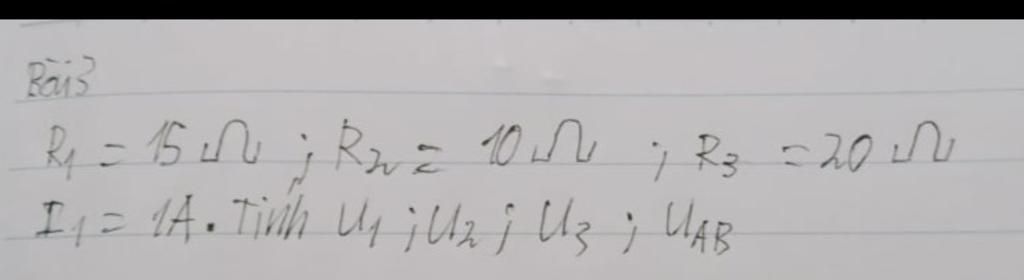 Bài 3
R₁ = 15 Ω ; R₂ = 10 Ω ; R₃ = 20 Ω
I₁ = 1A. Tính U₁ ; U₂ ; U₃ ; U_AB